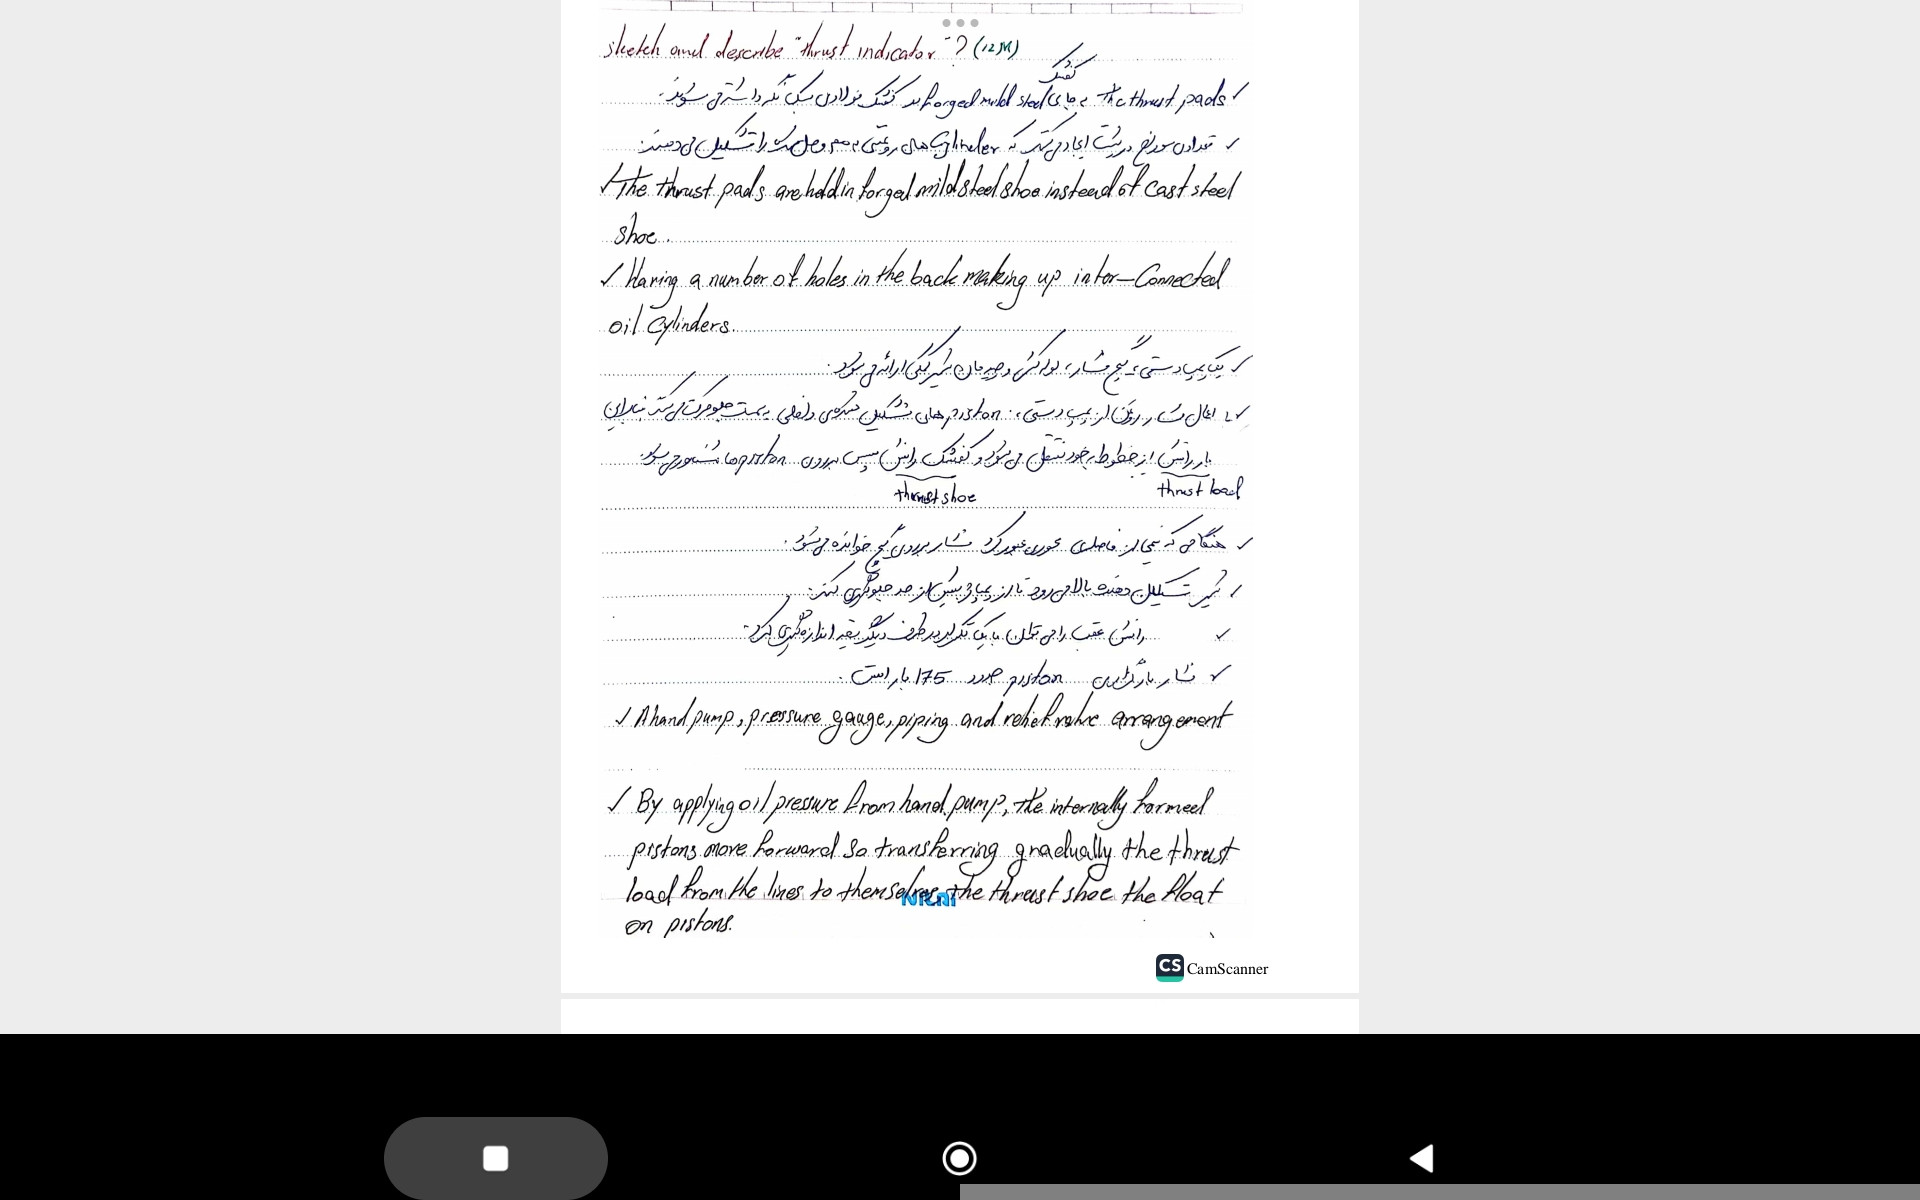 sketch and describe "thrust indicator"? (12M)
کفشک
✓ The thrust pads به جای forged mild steel در کفشک فولادی سبک نگه داشته می شوند.
✓ تعدادی سوراخ در پشت ایجاد می کند که cylinder های روغنی به هم وصل شده را تشکیل می دهند.
✓ The thrust pads are held in forged mild steel shoe instead of cast steel
shoe.
✓ Having a number of holes in the back making up inter-Connected
oil Cylinders.
✓ یک پمپ دستی، گیج فشار، لوله کشی و چیدمان شیر ارائه می شود.
✓ با اعمال فشار روغن از پمپ دستی، piston های تشکیل شده ی داخلی به سمت جلو حرکت می کند بنابراین
بار رانش از خطوط به خود منتقل می شود و کفشک رانش سپس بر روی piston ها شناور می شود.
thrust shoe
thrust load
✓ هنگامی که نیمی از فاصله ی محوری عبور کرد فشار بر روی گیج خوانده می شود.
✓ شیر تسکین دهنده بالا می رود تا از پمپاژ بیش از حد جلوگیری کند.
✓ رانش عقب را می توان با یک در طرف دیگر یقه اندازه گیری کرد.
✓ فشار بارگذاری piston حدود 175 بار است.
✓ A hand pump, pressure gauge, piping and relief valve arrangement
✓ By applying oil pressure from hand pump, the internally formed
pistons move forward So transferring gradually the thrust
load from the lines to themselves, the thrust shoe the float
on pistons.
CS CamScanner